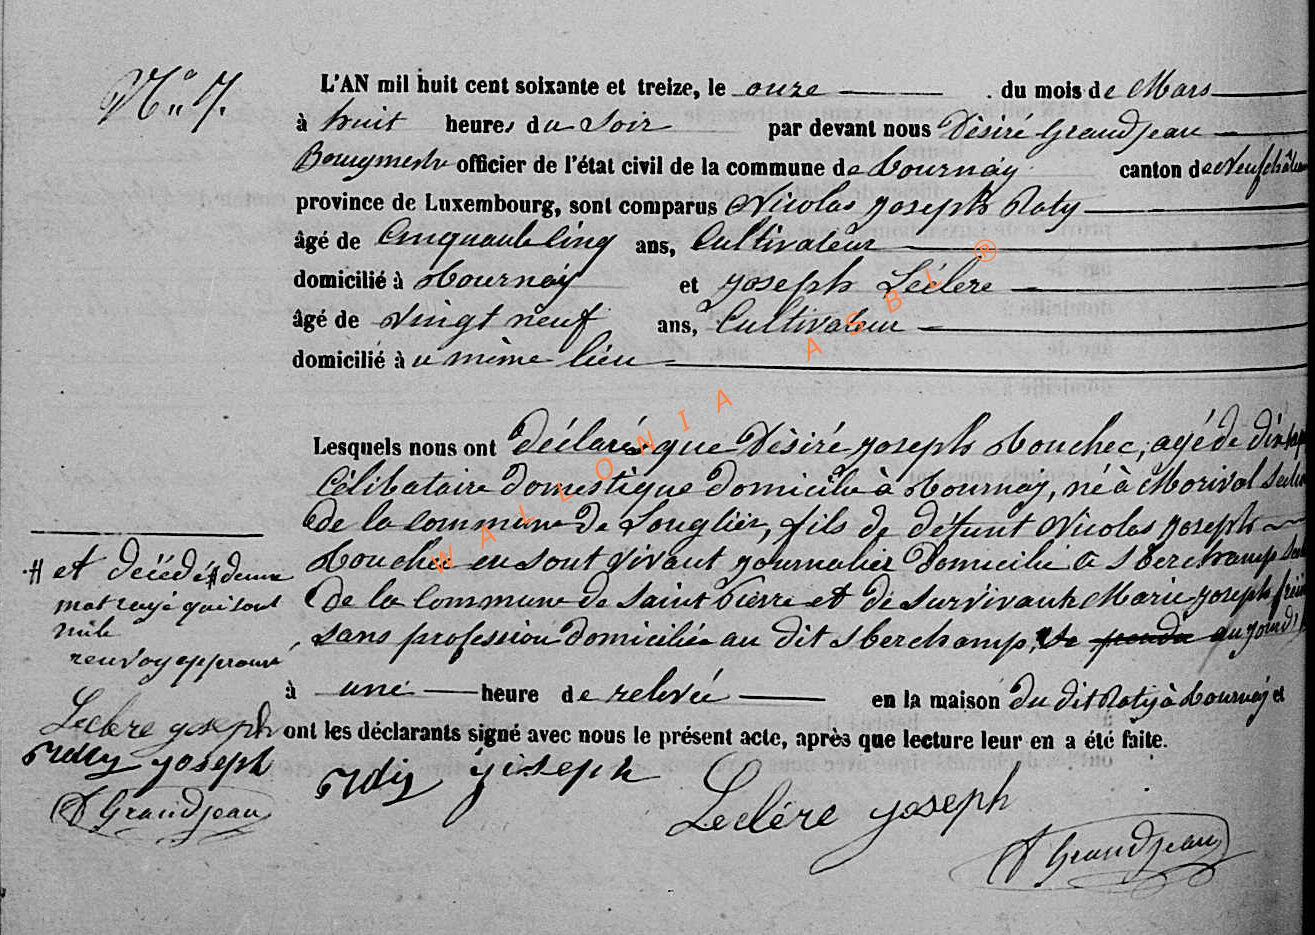 N° 7.
L'AN mil huit cent soixante et treize, le onze du mois de Mars
à huit heures du Soir par devant nous Désiré Grandjean
Bourgmestre officier de l'état civil de la commune de Tournay canton de Neufchâteau
province de Luxembourg, sont comparus Nicolas Joseph Roty
âgé de Cinquante cinq ans, Cultivateur
domicilié à Tournay et Joseph Léclère
âgé de vingt neuf ans, Cultivateur
domicilié à u même lieu
Lesquels nous ont déclaré que Désiré Joseph Mouchec, agé de
Célibataire domestique domicilié à Tournay, né à Morival
de la commune de Longlier, fils de défunt Nicolas Joseph
Mouchec en sont vivant journalier domicilié à Sberchamp
de la commune de Saint Pierre et de survivante Marie Joseph
sans profession domiciliée au dit Sberchamp,
à une heure de relevée en la maison du dit Roty à Tournay et
ont les déclarants signé avec nous le présent acte, après que lecture leur en a été faite.
# et décédé # deux
mot rayé qui sont
nuls
renvoy approuvé
Leclere joseph
Rolly joseph
D Grandjean
Roly joseph
Leclére joseph
D Grandjean
WALLONIA ASBL ®